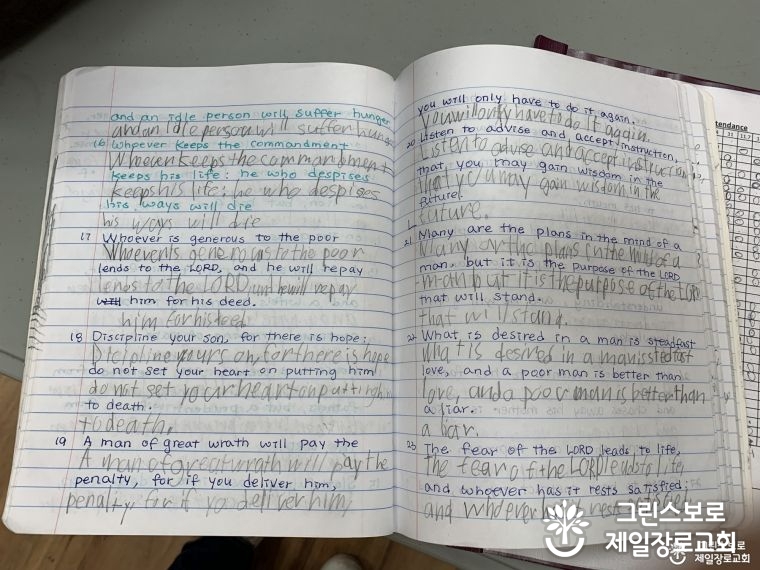 and an idle person will suffer hunger
and an Idle person will suffer hung
16 Whoever keeps the commandment
Whoever keeps the commandment
keeps his life; he who despises
keeps his life; he who despises
his ways will die
his ways will die
17 Whoever is generous to the poor
Whoevents generous to the poor
lends to the LORD, and he will repay
lends to the LORD and he will repay
will him for his deed.
him for his deed
18 Discipline your son, for there is hope;
Dicipline yours on, for there is hope
do not set your heart on putting him
do not set your heart on putting hi
to death.
to death.
19 A man of great wrath will pay the
A man of great wrath will pay the
penalty, for if you deliver him,
penalty for if yo deliver him,
you will only have to do it again.
You will only have to do it again.
20 Listen to advise and accept instruction,
Listen to advise and accept instruction
that, you may gain wisdom in the
that you may gain wisdom in the
future!
future.
21 Many are the plans in the mind of a
Many ar the plans in the mind of a
man, but it is the purpose of the LORD
man but it is the purpose of the LORD
that will stand.
that will stand.
22 What is desired in a man is steadfast
What is desired in a man is stedfast
love, and a poor man is better than
love, and a poor man is better than
a liar.
a liar.
23 The fear of the LORD leads to life,
the fear of the LORD leads to life,
and whoever has it rests satisfied;
and whoever rest satisfied
tendance
그린스보로
제일장로교회
그린스보로
제일장로교회